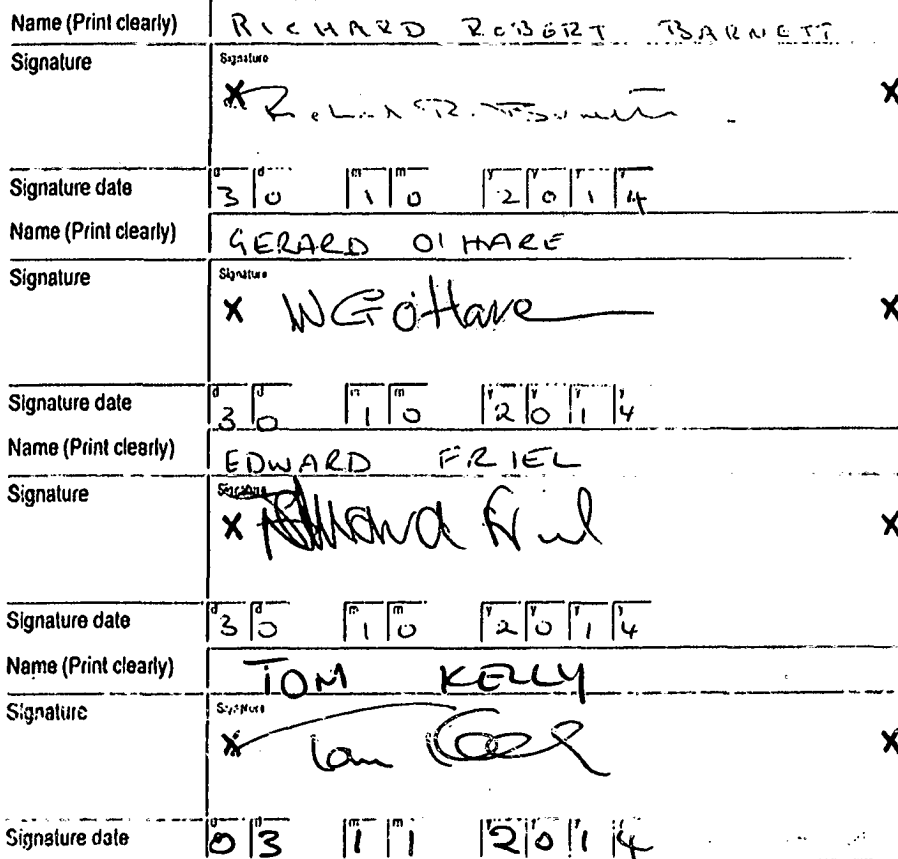 Name (Print clearly) RICHARD ROBERT BARNETT
Signature Signature
X Richard R. Barnett X
Signature date d d m m y y y y
3 0 1 0 2 0 1 4
Name (Print clearly) GERARD O'HARE
Signature Signature
X W G O'Hare X
Signature date d d m m y y y y
3 0 1 0 2 0 1 4
Name (Print clearly) EDWARD FRIEL
Signature Signature
X Edward Friel X
Signature date d d m m y y y y
3 0 1 0 2 0 1 4
Name (Print clearly) TOM KELLY
Signature Signature
X Tom X
Signature date d d m m y y y y
0 3 1 1 2 0 1 4